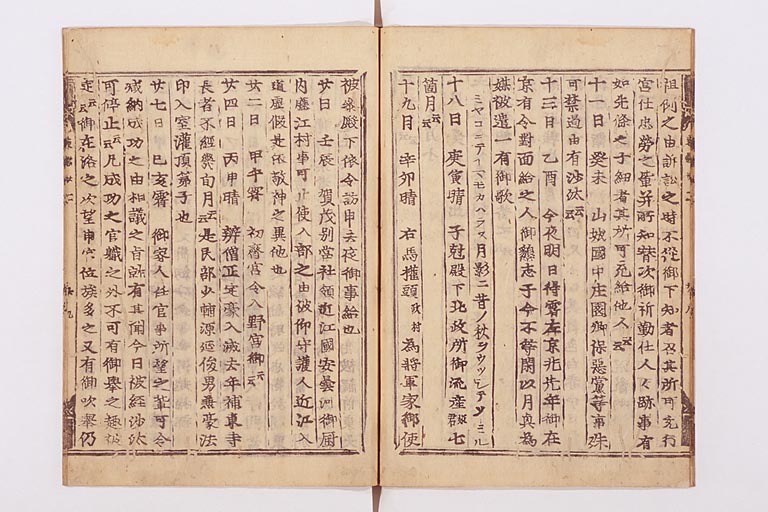 祖例之由訴訟之時不從御下知者召其所可充行
宮仕忠勞之輩并所知替次御祈勤仕人々跡事有
如先條之子細者其所可充給他人云云
十一日 癸未 山城國中庄園郷保惡黨等事殊
可禁遏由有沙汰云云
十三日 乙酉 今夜明月得霽左京兆先年御在
京有令對面給之人御懇志于今不等閑以月爲
媒被遣一首御歌
ミヤコニテイマモカハラヌ月影ニ昔ノ秋ヲウツシテソミル
十八日 庚寅晴 子尅殿下北政所御流産歟七
箇月云云
十九日 辛卯晴 右馬權頭政村爲將軍家御使
被參殿下依令訪申去夜御事給也
廿日 壬辰 賀茂別當社領近江國安曇河御厨
内藤江村事可止使入部之由被仰守護人近江入
道虚假是依敬神之異他也
廿二日 甲午霽 初齋宮令入野宮御云云
廿四日 丙申晴 辨僧正定豪入滅去年補東寺
長者不經幾旬月云云是民部少輔源延俊男兼豪法
印入室灌頂弟子也
廿七日 己亥霽 御家人任官事所望之輩可令
成納成功之由相議之旨雖有其聞今日被經沙汰
可停止云云凡成功之官職之外不可有御擧之趣被
定云云御在洛之次望申官位族多之又有御吹擧仍